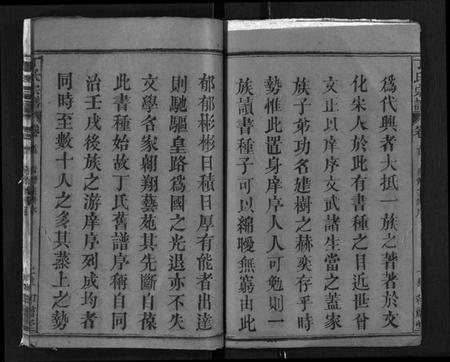 為代興者大抵一族之著者於文
化宋人於此有書種之目近世曾
文正以庠序文武諸生當之蓋家
族子弟功名建樹之赫奕存乎時
勢惟此置身庠序人人可勉則一
族讀書種子可以綿曖無窮由此
郁郁彬彬日積日厚有能者出達
則馳驅皇路為國之光退亦不失
文學名家翱翔藝苑其先斷自葆
此書種始故丁氏舊譜序稱自同
治壬戌後族之游庠序列成均者
同時至數十人之多其蒸上之勢